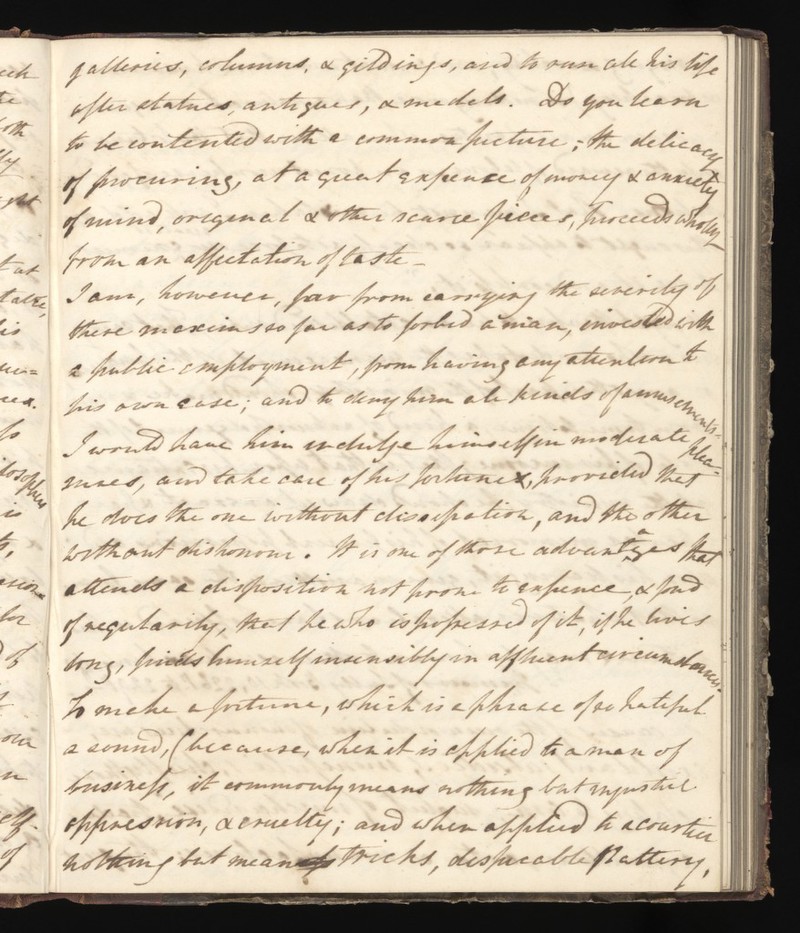 galleries, columns, & gildings, and to run all his life
after statues, antiques, & medels. Do you learn
to be contented with a common picture; the delicacy
of procuring, at a great expence of money & anxiety
of mind, original & other scarce pieces, proceeds wholly
from an affectation of taste -
I am, however, far from carrying the severity of
these maxims so far as to forbid a man, invested with
a public employment, from having any attention to
his own ease; and to deny him all kinds of amusements.
I would have him indulge himself in moderate plea-
sures, and take care of his fortune, provided that
he does the one without dissipation, and the other
without dishonour. It is one of those advantages that
attends a disposition not prone to expence, & fond
of regularity, that he who is possessed of it, if he lives
long, finds himself insensibly in affluent circumstances.
To make a fortune, which is a phrase of so hateful
a sound, (because, when it is applied to a man of
business, it commonly means nothing but injustice
oppression, & cruelty; and when applied to a courtier
nothing but mean tricks, despicable flattery,